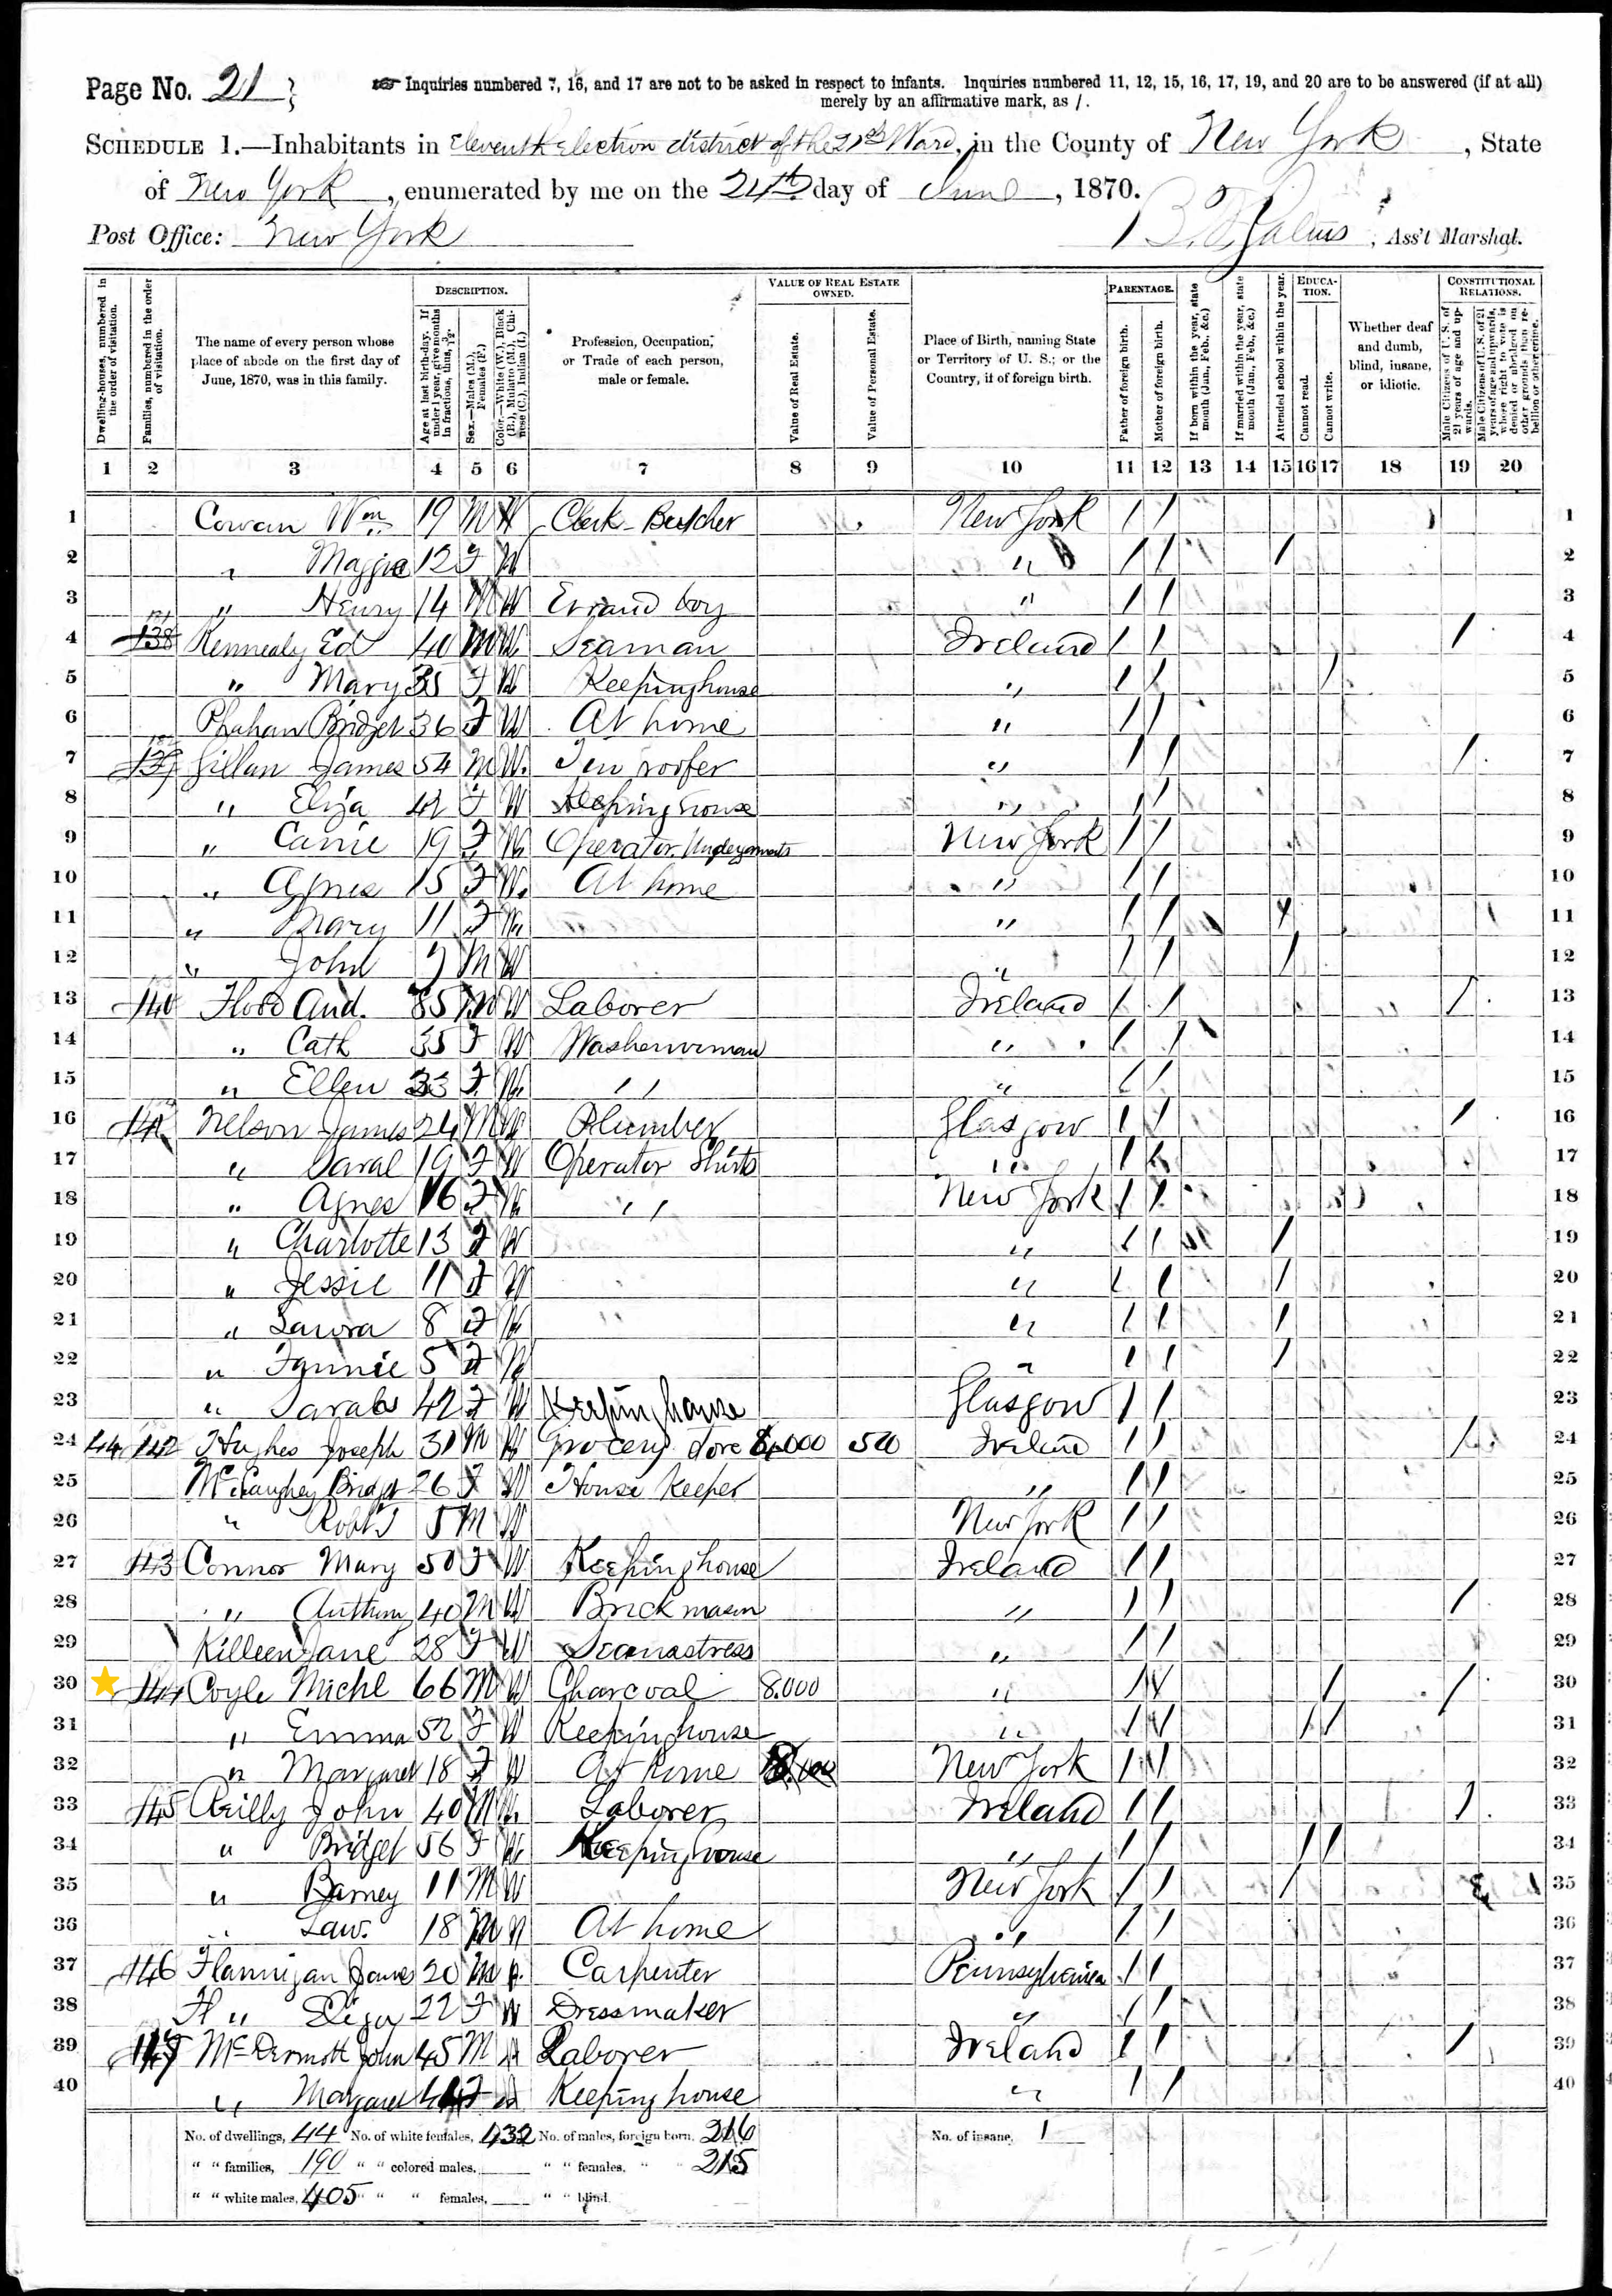 Page No. 21
Inquiries numbered 7, 16, and 17 are not to be asked in respect to infants. Inquiries numbered 11, 12, 15, 16, 17, 19, and 20 are to be answered (if at all)
merely by an affirmative mark, as /.
SCHEDULE 1.—Inhabitants in Eleventh Election district of the 21st Ward, in the County of New York, State
of New York, enumerated by me on the 24th day of June, 1870.
Post Office: New York , Ass't Marshal.
Dwelling-houses, numbered in the order of visitation.
Families, numbered in the order of visitation.
The name of every person whose place of abode on the first day of June, 1870, was in this family.
DESCRIPTION.
Age at last birth-day. If under 1 year, give months in fractions, thus, 3/12.
Sex.—Males (M.), Females (F.)
Color.—White (W.), Black (B.), Mulatto (M.), Chinese (C.), Indian (I.)
Profession, Occupation, or Trade of each person, male or female.
VALUE OF REAL ESTATE OWNED.
Value of Real Estate.
Value of Personal Estate.
Place of Birth, naming State or Territory of U. S.; or the Country, if of foreign birth.
PARENTAGE.
Father of foreign birth.
Mother of foreign birth.
If born within the year, state month (Jan., Feb., &c.)
If married within the year, state month (Jan., Feb., &c.)
Attended school within the year.
EDUCATION.
Cannot read.
Cannot write.
Whether deaf and dumb, blind, insane, or idiotic.
CONSTITUTIONAL RELATIONS.
Male Citizens of U. S. of 21 years of age and upwards.
Male Citizens of U. S. of 21 years of age and upwards, whose right to vote is denied or abridged on other grounds than rebellion or other crime.
1 2 3 4 5 6 7 8 9 10 11 12 13 14 15 16 17 18 19 20
1 Cowan Wm 19 M W Clerk Butcher New York / / 1
2 " Maggie 12 F W " / / / 2
3 " Henry 14 M W Errand boy " / / 3
4 138 Kennealy Ed 40 M W Seaman Ireland / / / 4
5 " Mary 35 F W Keeping house " / / / 5
6 Bridget 36 F W At home " / / 6
7 139 Gillan James 54 M W Tin roofer " / / / 7
8 " Eliza 42 F W Keeping house " / / 8
9 " Carrie 19 F W Operator New York / / 9
10 " Agnes 15 F W At home " / / 10
11 " Mary 11 F W " / / / 11
12 " John 7 M W " / / / 12
13 140 Flood And. 35 M W Laborer Ireland / / / 13
14 " Cath 35 F W Washerwoman " / / 14
15 " Ellen 23 F W " " / / 15
16 141 Nelson James 24 M W Plumber Glasgow / / / 16
17 " Sarah 19 F W Operator Shirts " / / 17
18 " Agnes 16 F W " New York / / 18
19 " Charlotte 13 F W " / / / 19
20 " Jessie 11 F W " / / / 20
21 " Laura 8 F W " / / / 21
22 " Fannie 5 F W " / / / 22
23 " Sarah 42 F W Keeping house Glasgow / / 23
24 44 142 Hughes Joseph 31 M W Grocery Store 6,000 500 Ireland / / / 24
25 McCaughey Bridget 26 F W House Keeper " / / 25
26 " Robt 5 M W New York / / 26
27 143 Connor Mary 50 F W Keeping house Ireland / / 27
28 " Anthony 40 M W Brick mason " / / / 28
29 Killeen Jane 28 F W Seamastress " / / 29
30 144 Coyle Michl 66 M W Charcoal 8.000 " / / / / 30
31 " Emma 52 F W Keeping house " / / / / 31
32 " Margaret 18 F W At home New York / / 32
33 145 Reilly John 40 M W Laborer Ireland / / / 33
34 " Bridget 56 F W Keeping house " / / / / 34
35 " Barney 11 M W New York / / / 35
36 " Law. 18 M W At home " / / 36
37 146 Flannigan James 20 M W Carpenter Pennsylvania / / 37
38 " Eliza 22 F W Dressmaker " / / 38
39 147 McDermott John 45 M W Laborer Ireland / / / 39
40 " Margaret F W Keeping house " / / 40
No. of dwellings, 44 No. of white females, 432 No. of males, foreign born, 216 No. of insane, 1
" " families, 190 " " colored males, " " females, " " 215
" " white males, 405 " " " females, " " blind.